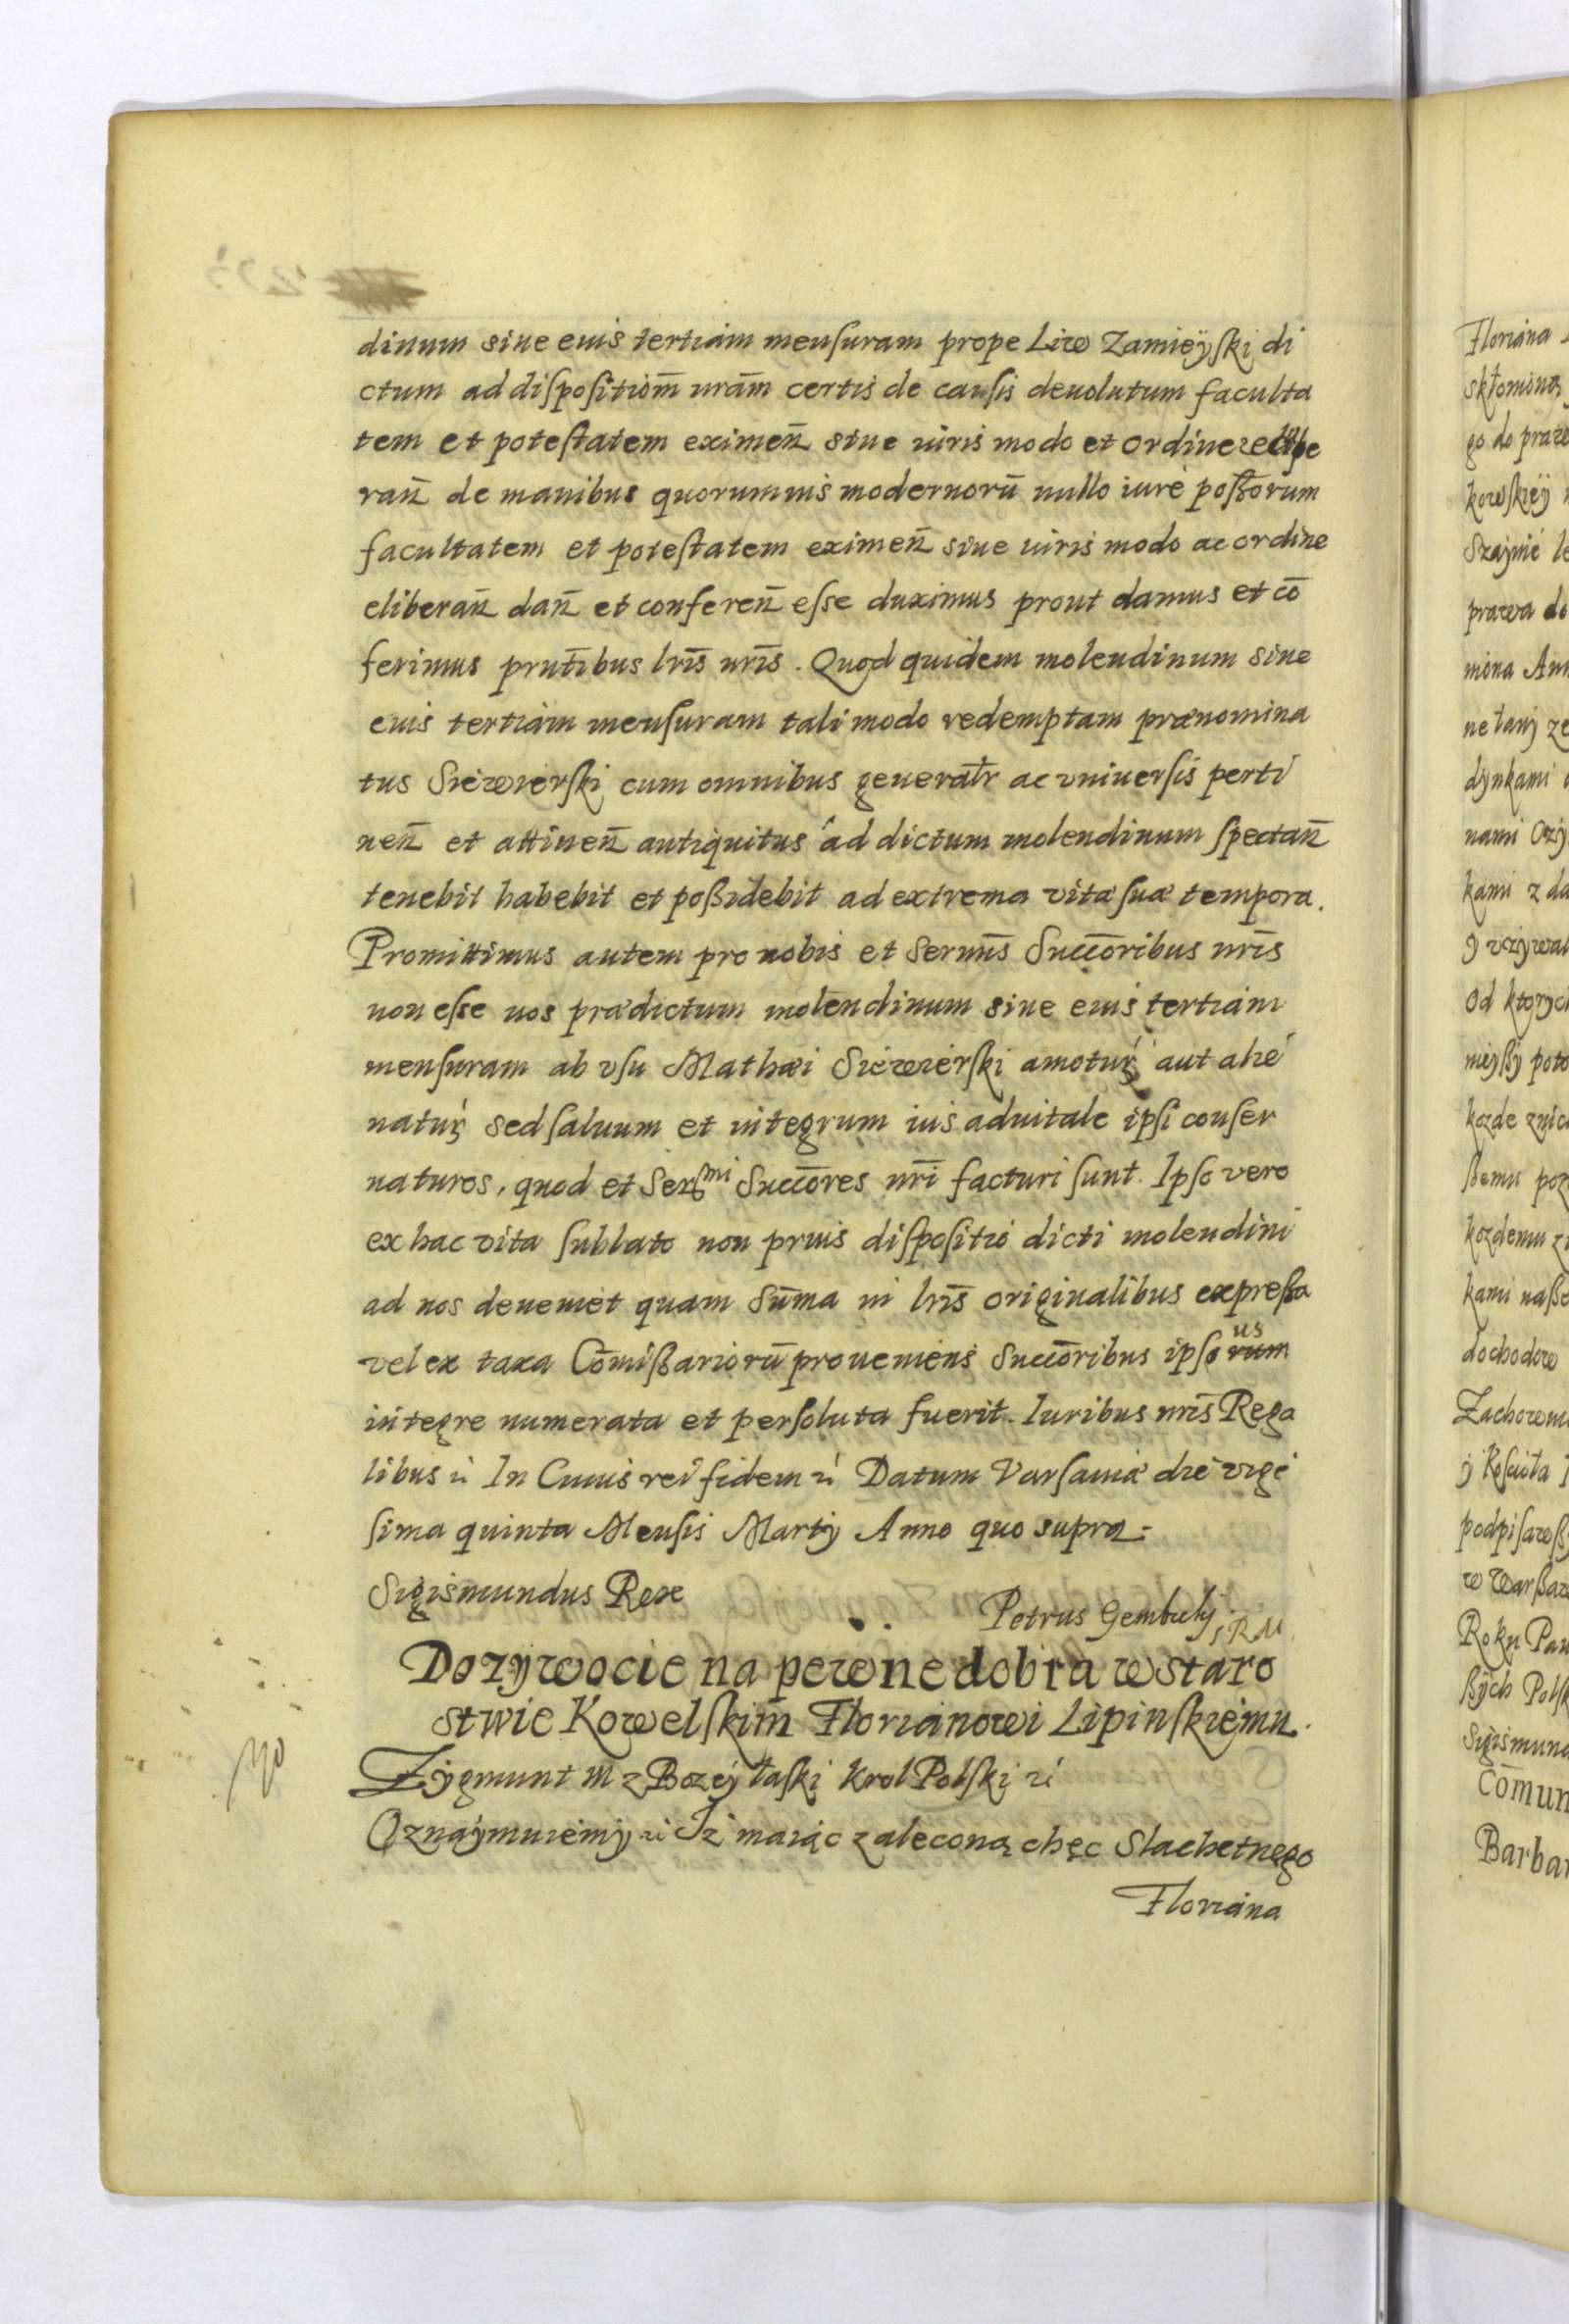 dinum siue eius tertiam mensuram prope Liw Zamieÿski di
ctum ad dispositiom̃ nrãm certis de causis deuolutum faculta
tem et potestatem eximen̄ siue iuris modo et ordine
ran̄ de manibus quorumuis modernorū nullo iure possorum
facultatem et potestatem eximen̄ siue iuris modo ac ordine
eliberan̄ dan̄ et conferen̄ esse duximus prout damus et cō
ferimus prñtibus lrīs nrīs. Quod quidem molendinum siue
eius tertiam mensuram tali modo redemptam prænomina
tus Siewierski cum omnibus generalr̄ ac vniuersis perti
nen̄ et attinen̄ antiquitus ad dictum molendinum spectan̄
tenebit habebit et possidebit ad extrema vitæ suæ tempora.
Promittimus autem pro nobis et Sermīs Succōribus nrīs
non esse nos prædictum molendinum siue eius tertiam
mensuram ab vsu Mathæi Siewierski amotur aut alie
natur sed saluum et integrum ius aduitale ipsi conser
naturos, quod et Ser mi Succōres nrī facturi sunt. Ipso vero
ex hac vita sublato non prius dispositio dicti molendini
ad nos deueniet quam Sūma in lrīs originalibus expressa
vel ex taxa Cōmissariorū proueniens Succōribus ipsorum us
integre numerata et persoluta fuerit. Iuribus nrīs Rega
libus ꝛc In Cuius rei fidem ꝛc Datum Varsauiæ die vige
sima quinta Mensis Martij Anno quo supra.
Sigismundus Rex
Petrus Gembicky S R M.
Dozywocie na pewne dobra w staro
stwie Kowelskim̄ Florianowi Lipinskiemu.
Zygmunt III z Bozey łaski Krol Polski ꝛc
Oznaymuiemy ꝛc Iz maiąc zaleconą chęc Slachetnego
Floriana
Floriana
skłoniona
go do prawa
kowskiÿ
Szajnie
prawa do
miona Ann
ne łany ze
dÿnkami
nami
kami z da
ÿ vzÿwal
Od ktorych
poto
kozde
ssemu poz
kozdemu
kami nasse
dochodow
Zachowuie
ÿ Kosciola
podpisawss
w Warssaw
Roku Pan
ssÿch Polsk
Sigismund
Cōmun
Barbar